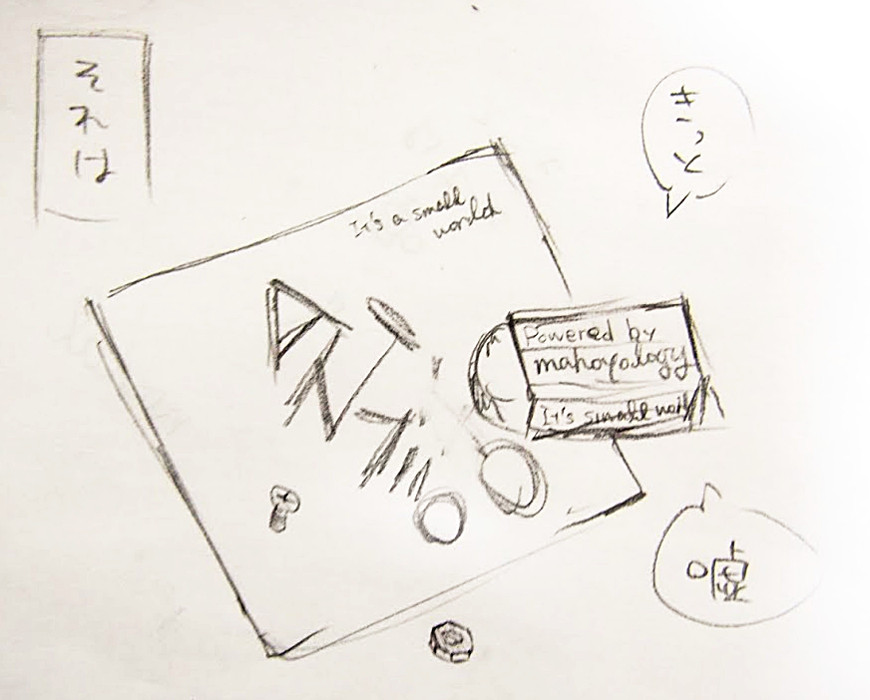 それは
きっと
It's a small
world
Powered by
mahoyology
It's small
嘘